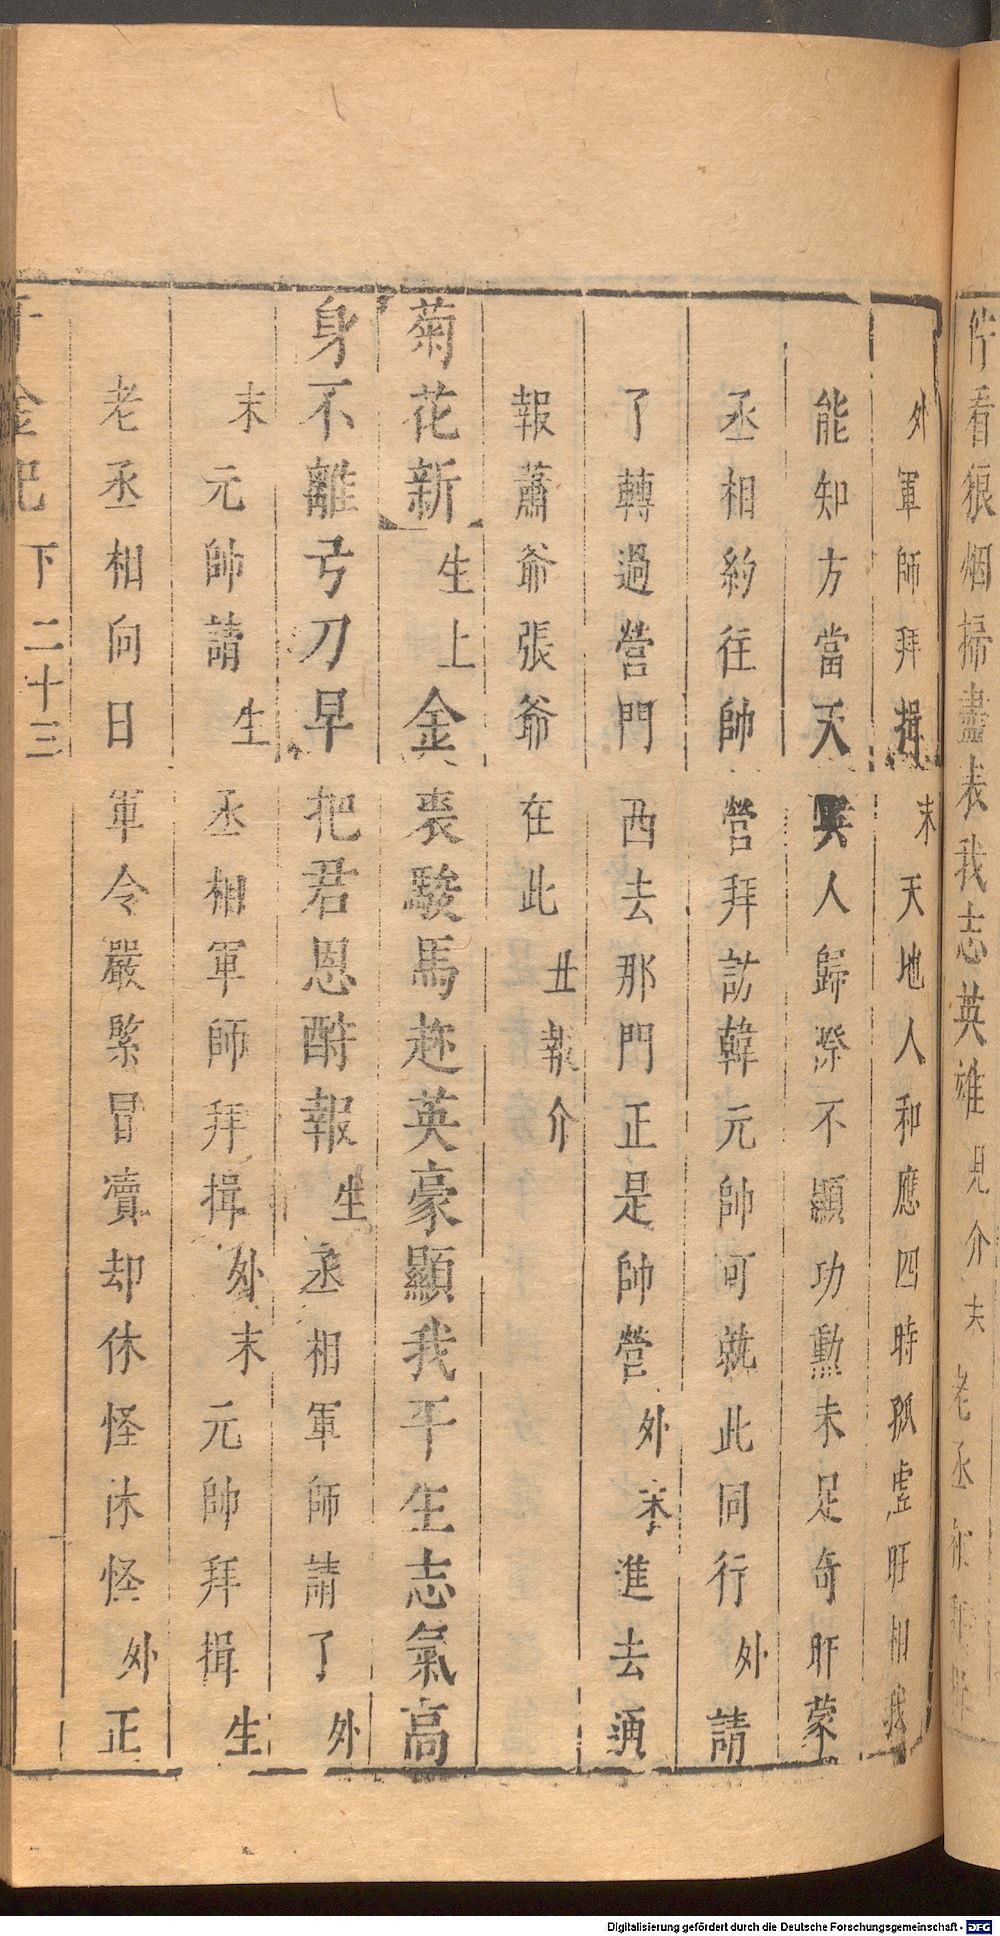 仵看狼烟掃盡表我志英雄見介末老丞
外軍師拜揖末天地人和應四時孤虛旺相我
能知方當天與人歸際不顯功勲未足奇旰蒙
丞相約往帥營拜訪韓元帥可就此同行外請
了轉過營門西去那門正是帥營外末進去通
報蕭爺張爺在此丑報介
菊花新生上金裘駿馬趂英豪顯我平生志氣高
身不離弓刀早把君恩酧報生丞相軍師請了外
末元帥請生丞相軍師拜揖外末元帥拜揖生
老丞相向日軍令嚴緊冒瀆却休怪休怪外正
千金記 下 二十三
Digitalisierung gefördert durch die Deutsche Forschungsgemeinschaft - DFG